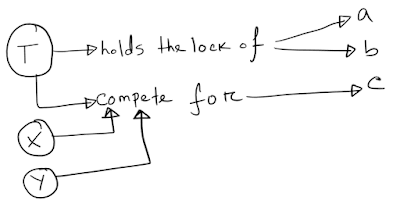 a
T holds the lock of b
compete for c
X
Y